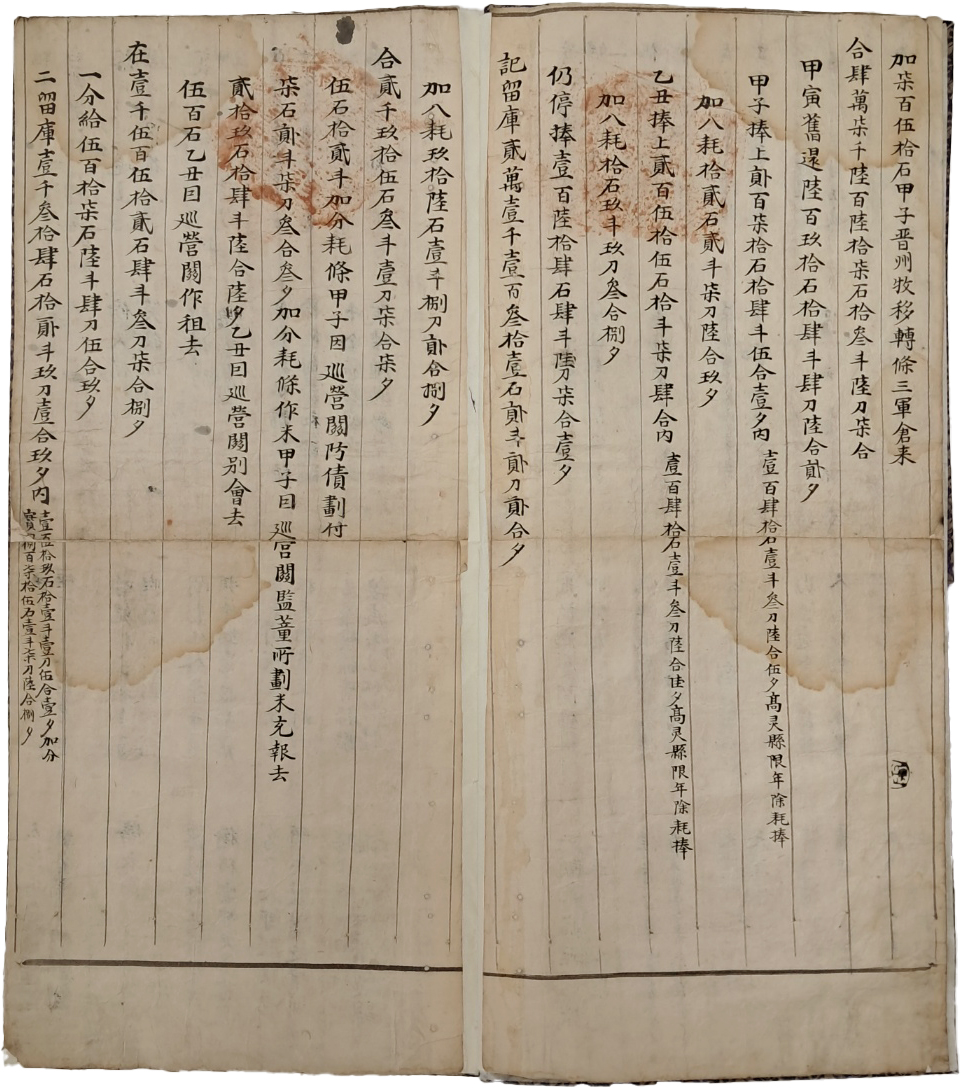 加柒百伍拾石甲子晋州牧移轉條三軍倉来
合肆萬柒千陸百陸拾柒石拾叄斗陸刀柒合
甲寅舊還陸百玖拾石拾肆斗肆刀陸合貮夕
甲子捧上貮百柒拾石拾肆斗伍合壹夕內 壹百肆拾石壹斗叄刀陸合伍夕高灵縣限年除耗捧
加八耗拾貳石貳斗柒刀陸合玖夕
乙丑捧上貳百伍拾伍石拾斗柒刀肆合內 壹百肆拾石壹斗叄刀陸合伍夕高灵縣限年除耗捧
加八耗拾石玖斗玖刀叄合捌夕
仍停捧壹百陸拾肆石肆斗陸刀柒合壹夕
記留庫貳萬壹千壹百叄拾壹石貮斗貮刀貮合夕
加八耗玖拾陸石壹斗捌刀貮合捌夕
合貳千玖拾伍石叄斗壹刀柒合柒夕
伍石拾貳斗加分耗條甲子因巡營關防債劃付
柒石貮斗柒刀叄合叄夕加分耗條作米甲子因巡營關監董所劃米充報去
貳拾玖石拾肆斗陸合陸夕乙丑因巡營關別會去
伍百石乙丑因巡營關作租去
在壹千伍百伍拾貳石肆斗叄刀柒合捌夕
一分給伍百拾柒石陸斗肆刀伍合玖夕
二留庫壹千叄拾肆石拾貮斗玖刀壹合玖夕內
壹百伍拾玖石拾壹斗壹刀伍合壹夕加分
實捌百柒拾伍石壹斗柒刀陸合捌夕